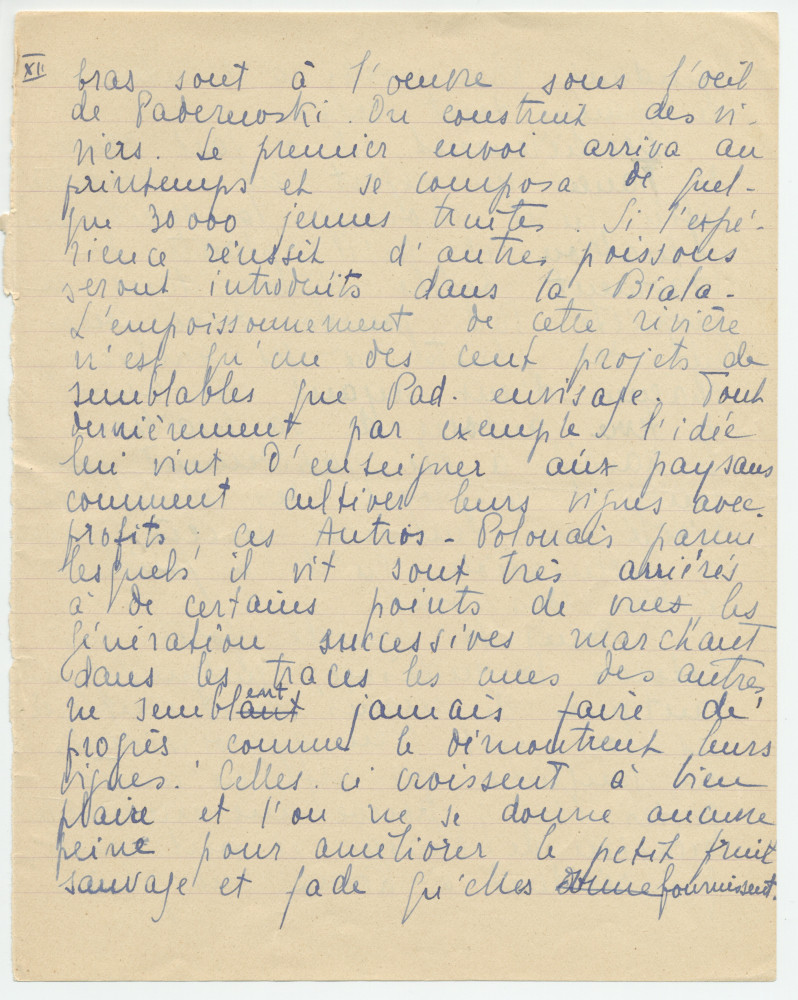 XII
bras sont à l'oeuvre sous l'oeil
de Paderewski. On construit des vi-
viers. Le premier envoi arriva au
printemps et se composa de quel-
que 30 000 jeunes truites. Si l'expé-
rience réussit d'autres poissons
seront introduits dans la Biala -
L'empoissonnement de cette rivière
n'est qu'un des cent projets de
semblables que Pad. envisage. Tout
dernièrement par exemple l'idée
lui vint d'enseigner aux paysans
comment cultiver leurs vignes avec
profits; ces Autros - Polonais parmi
lesquels il vit sont très arriérés
à de certains points de vues, les
génération successives marchant
dans les traces les unes des autres
ne semblant ent jamais faire de
progrès comme le démontrent leurs
vignes. Celles-ci croissent à bien
plaire et l'on ne se donne aucune
peine pour améliorer le petit fruit
sauvage et fade qu'elles donne fournissent.